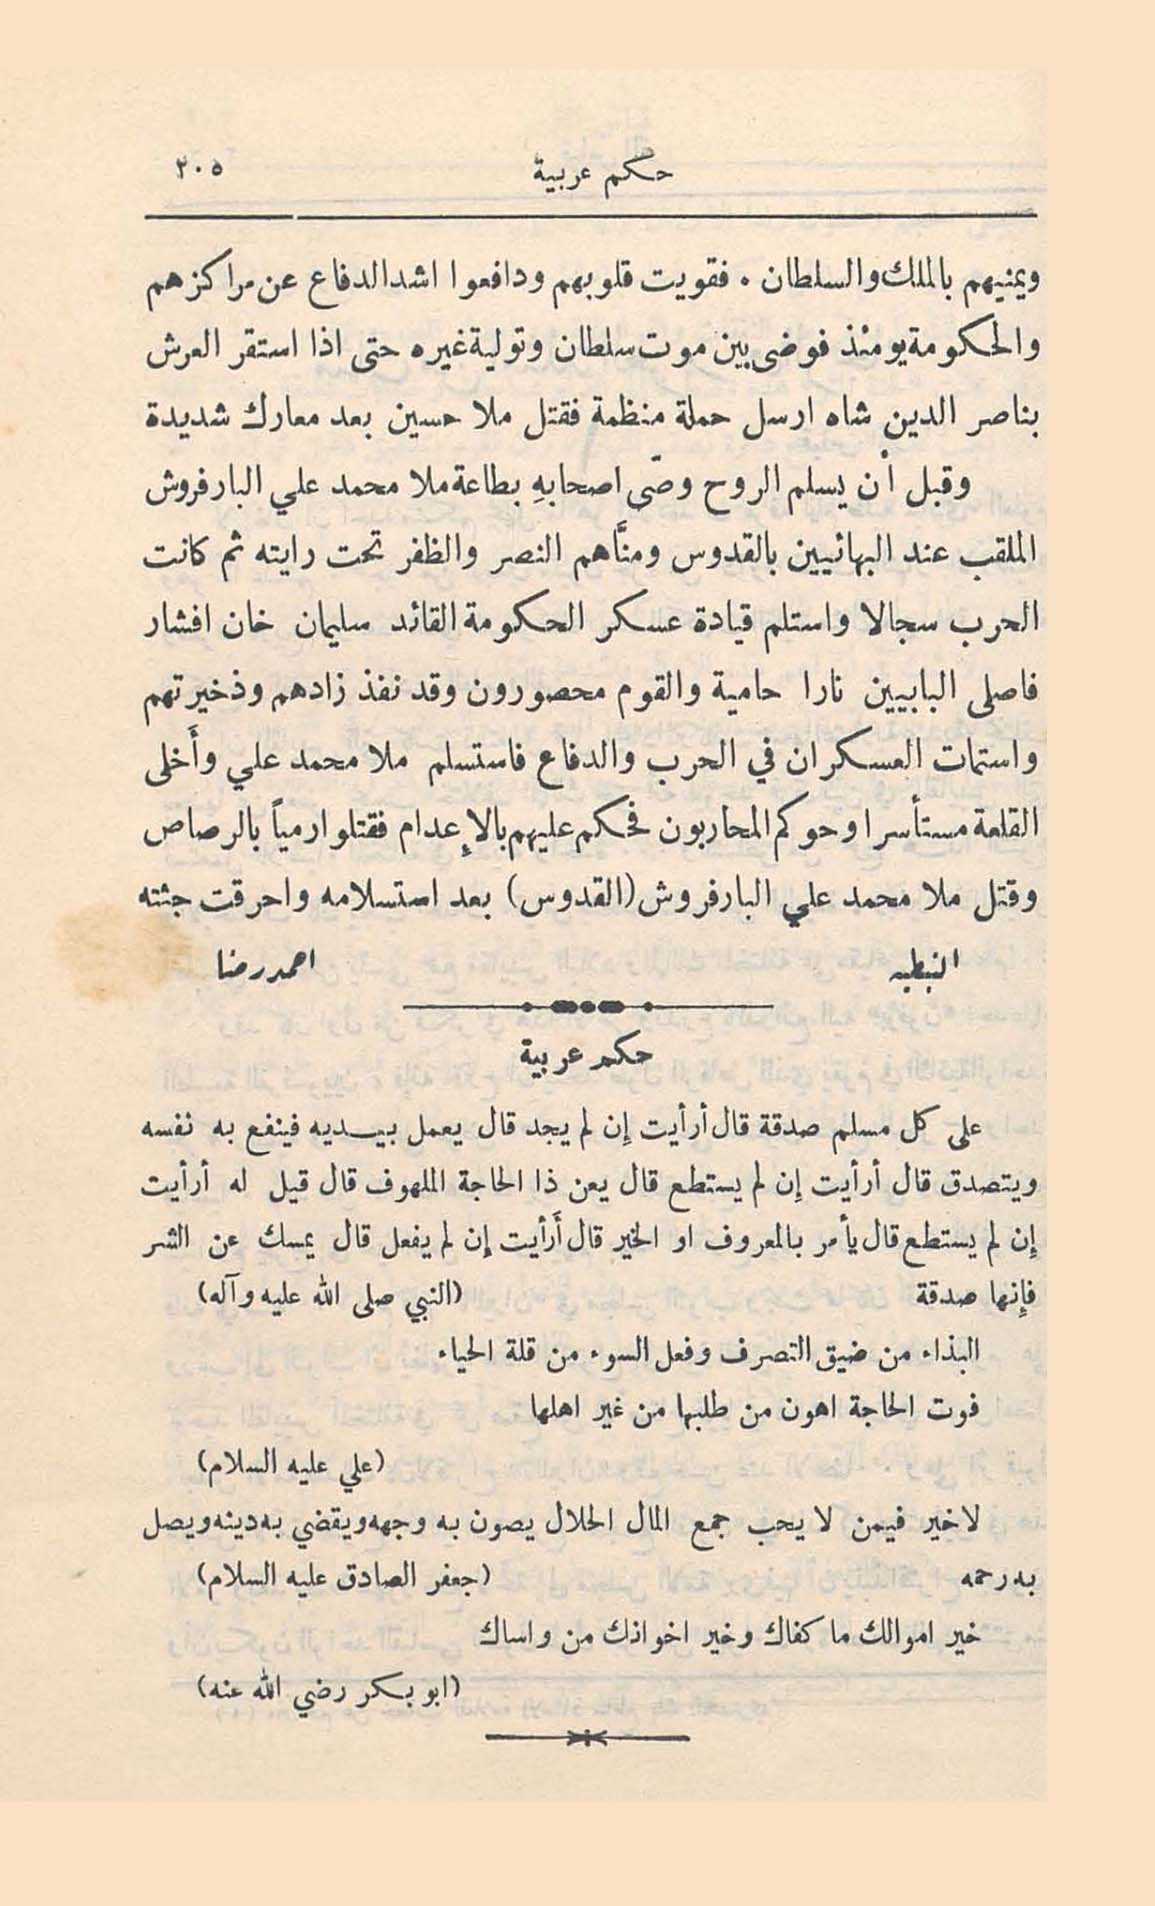 حكم عربية ٣٠٥
ويمنيهم بالملك والسلطان . فقويت قلوبهم ودافعوا اشد الدفاع عن مراكزهم
والحكومة يومئذ فوضى بين موت سلطان وتولية غيره حتى اذا استقر العرش
بناصر الدين شاه ارسل حملة منظمة فقتل ملا حسين بعد معارك شديدة
وقبل أن يسلم الروح وصّى اصحابهِ بطاعة ملا محمد علي البارفروش
الملقب عند البهائيين بالقدوس ومنَّاهم النصر والظفر تحت رايته ثم كانت
الحرب سجالا واستلم قيادة عسكر الحكومة القائد سليمان خان افشار
فاصلى البابيين نارا حامية والقوم محصورون وقد نفذ زادهم وذخيرتهم
واستمات العسكران في الحرب والدفاع فاستسلم ملا محمد علي وأَخلى
القلعة مستأسرا وحوكم المحاربون فحكم عليهم بالإعدام فقتلوا رمياً بالرصاص
وقتل ملا محمد علي البارفروش (القدوس) بعد استسلامه واحرقت جثته
النبطيه احمد رضا
حكم عربية
على كل مسلم صدقة قال أرأيت إن لم يجد قال يعمل بيديه فينفع به نفسه
ويتصدق قال أرأيت إن لم يستطع قال يعن ذا الحاجة الملهوف قال قيل له أرأيت
إن لم يستطع قال يأمر بالمعروف او الخير قال أَرأيت إن لم يفعل قال يمسك عن الشر
فإنها صدقة (النبي صلى الله عليه وآله)
البذاء من ضيق التصرف وفعل السوء من قلة الحياء
فوت الحاجة اهون من طلبها من غير اهلها
(علي عليه السلام)
لاخير فيمن لا يحب جمع المال الحلال يصون به وجهه ويقضي به دينه ويصل
به رحمه (جعفر الصادق عليه السلام)
خير اموالك ما كفاك وخير اخوانك من واساك
(ابو بكر رضي الله عنه)